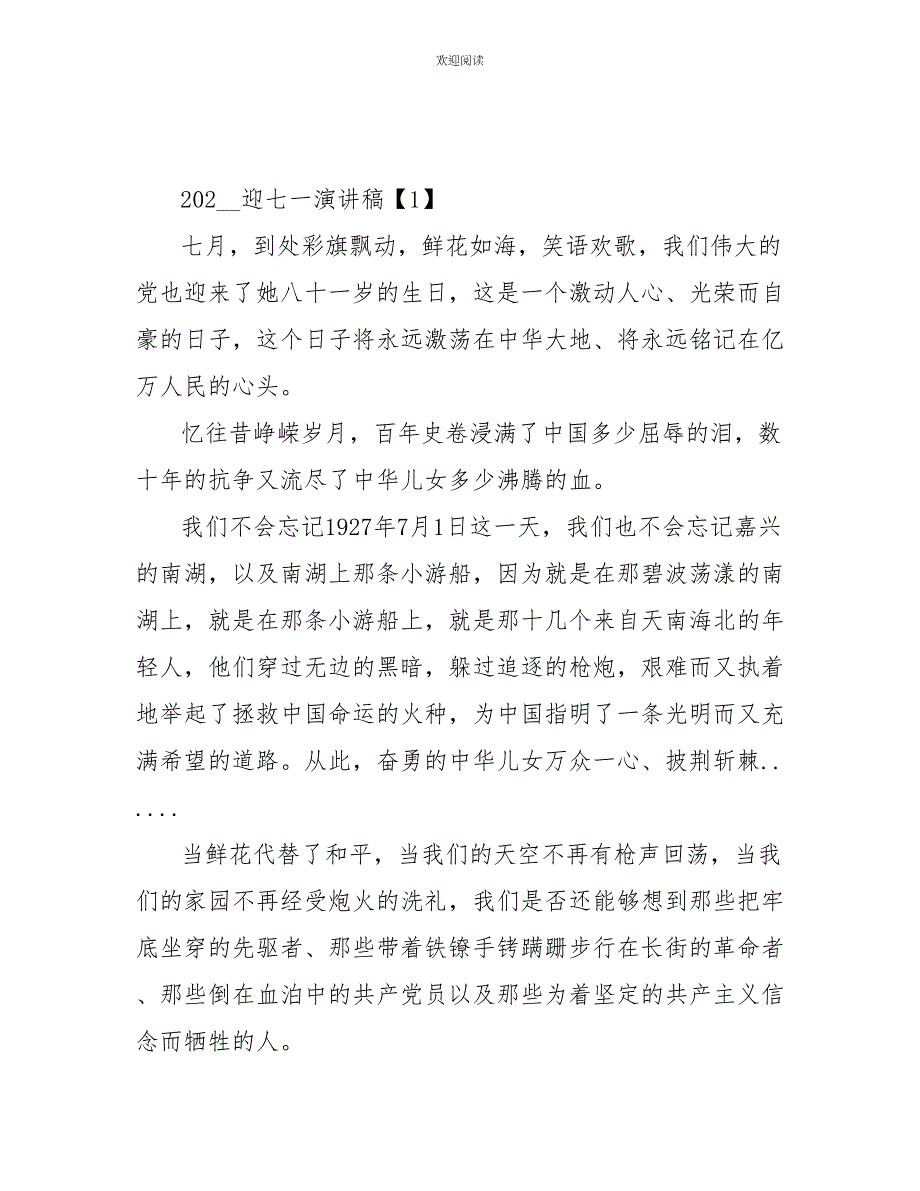 欢迎阅读
202__迎七一演讲稿【1】
七月，到处彩旗飘动，鲜花如海，笑语欢歌，我们伟大的
党也迎来了她八十一岁的生日，这是一个激动人心、光荣而自
豪的日子，这个日子将永远激荡在中华大地、将永远铭记在亿
万人民的心头。
忆往昔峥嵘岁月，百年史卷浸满了中国多少屈辱的泪，数
十年的抗争又流尽了中华儿女多少沸腾的血。
我们不会忘记1927年7月1日这一天，我们也不会忘记嘉兴
的南湖，以及南湖上那条小游船，因为就是在那碧波荡漾的南
湖上，就是在那条小游船上，就是那十几个来自天南海北的年
轻人，他们穿过无边的黑暗，躲过追逐的枪炮，艰难而又执着
地举起了拯救中国命运的火种，为中国指明了一条光明而又充
满希望的道路。从此，奋勇的中华儿女万众一心、披荆斩棘..
....
当鲜花代替了和平，当我们的天空不再有枪声回荡，当我
们的家园不再经受炮火的洗礼，我们是否还能够想到那些把牢
底坐穿的先驱者、那些带着铁镣手铐蹒跚步行在长街的革命者
、那些倒在血泊中的共产党员以及那些为着坚定的共产主义信
念而牺牲的人。